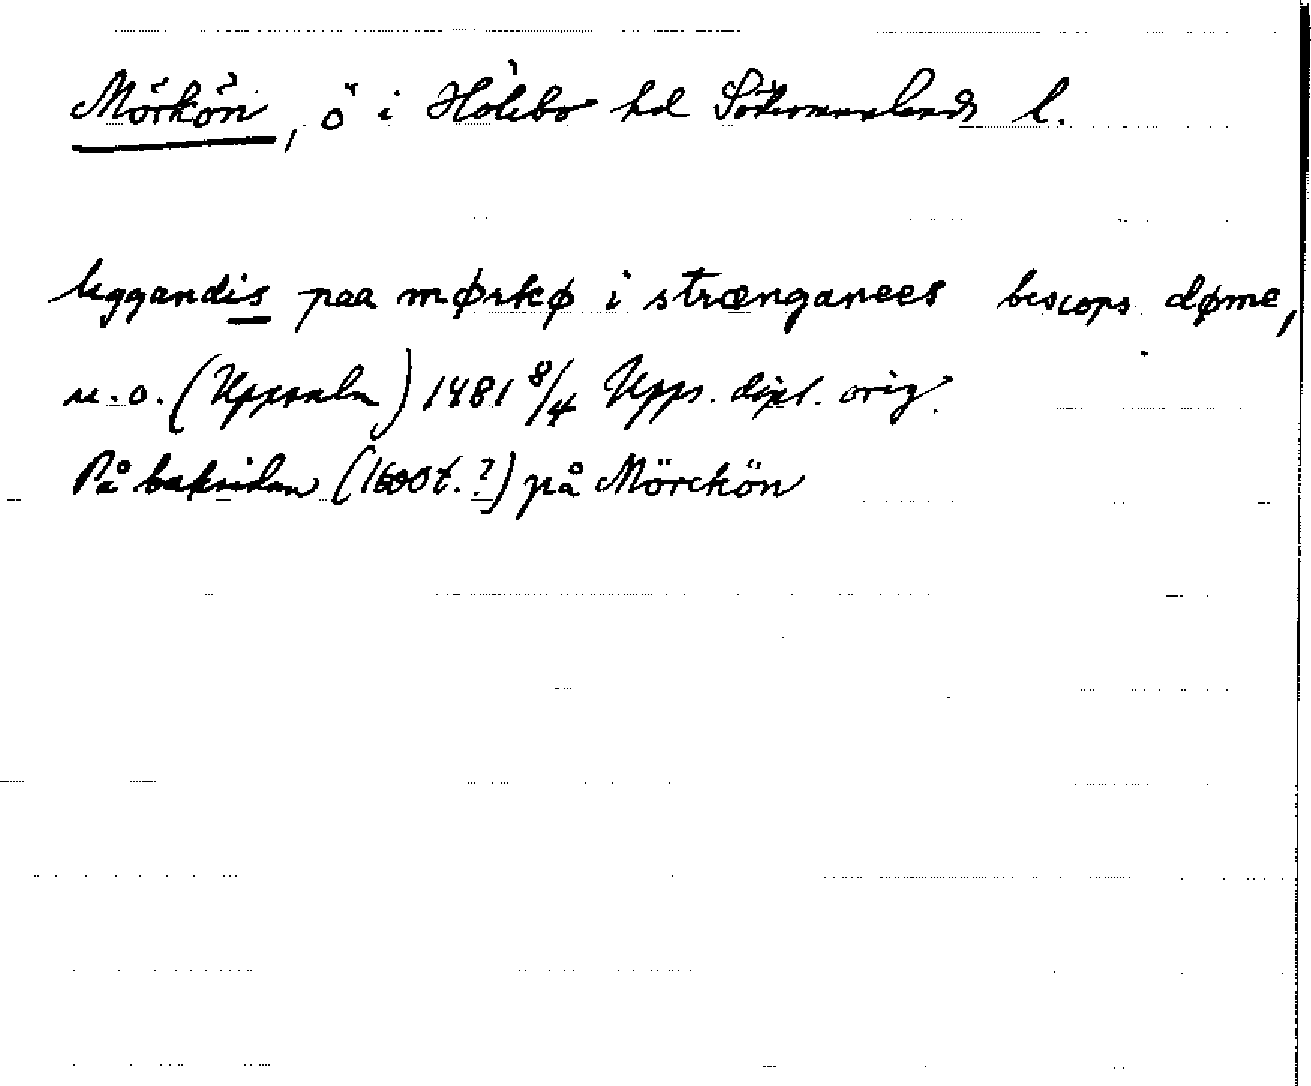 Mörkön, ö i Hölebo hd Södermanlands l.
liggandis paa mørkø i strænganees bescops døme,
u.o. (Uppsala) 1481 8/4 Upps. dipl. orig.
På baksidan (1600t.?) på Mörckön